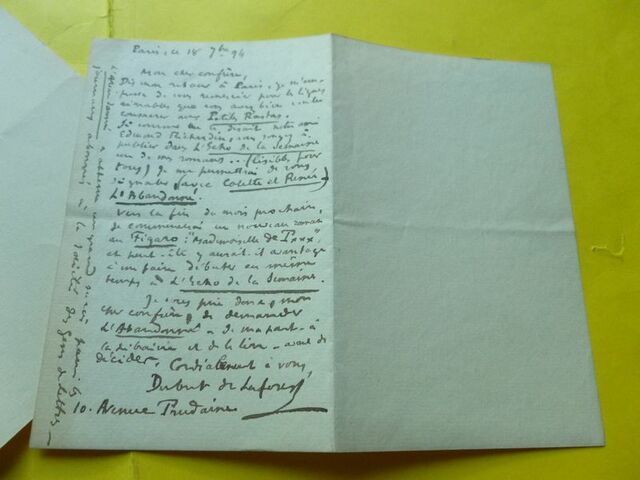 Paris, ce 18 7bre 94
Mon cher confrère,
Dès mon retour à Paris, je m'em-
presse de vous remercier pour les lignes
aimables que vous avez bien voulu
consacrer aux Petits Rastas.
Si comme me le disait notre ami
Edmond, vous songez à
publier dans L'Echo de la Semaine
un de mes romans... (lisibles pour
tous) je me permettrai de vous
signaler, avec Colette et Renée,
L'Abandonné.
Vers la fin du mois prochain,
je commencerai un nouveau roman
au Figaro: "Mademoiselle de Txxx",
et peut-être y aurait-il avantage
à me faire débuter en même
temps à L'Echo de la Semaine.
Je vous prie donc, mon
cher confrère, de demander
L'Abandonné - de ma part - à
la librairie et de le lire - avant de
décider. Cordialement à vous,
Dubut de Laforest
10. Avenue Trudaine
L'Abandonné a obtenu un grand succès parmi les
journaux abonnés à la Société des Gens de lettres